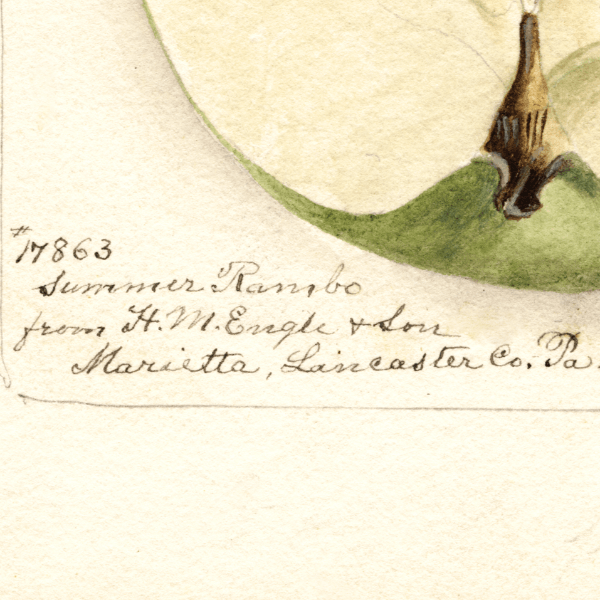 #17863
Summer Rambo
from H. M. Engle & Son
Marietta, Lancaster Co. Pa.